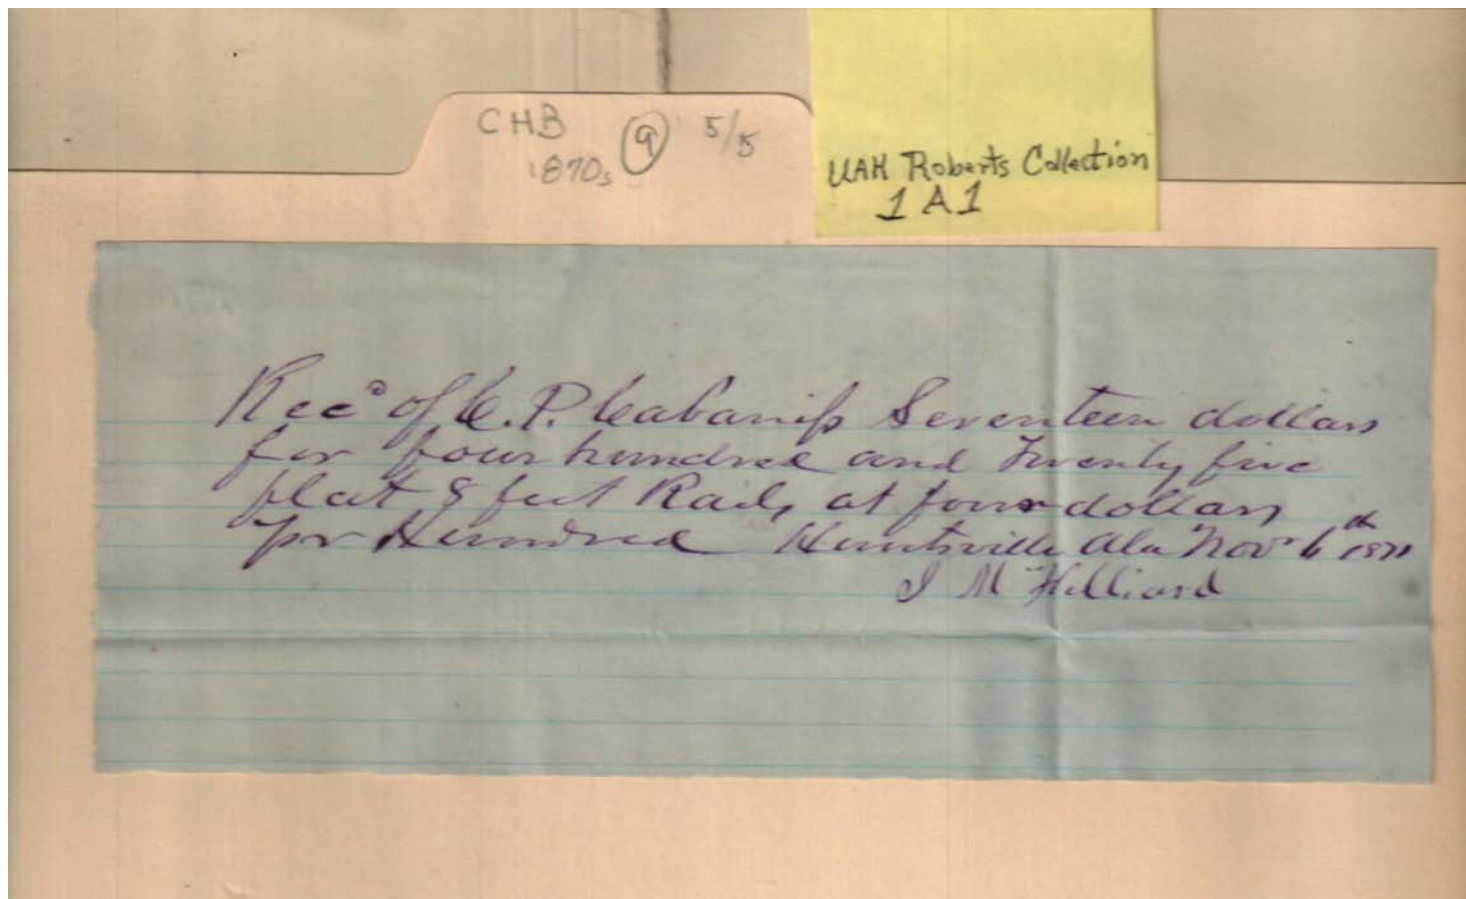 CHB 9 5/5
1870s
UAH Roberts Collection
1A1
Rec^d of C. P. Cabaniss Seventeen dollars
for four hundred and Twenty five
plat 8 feet Rails at four dollars
pr Hundred Huntsville Ala Nov 6th 1871
J M Hilliard